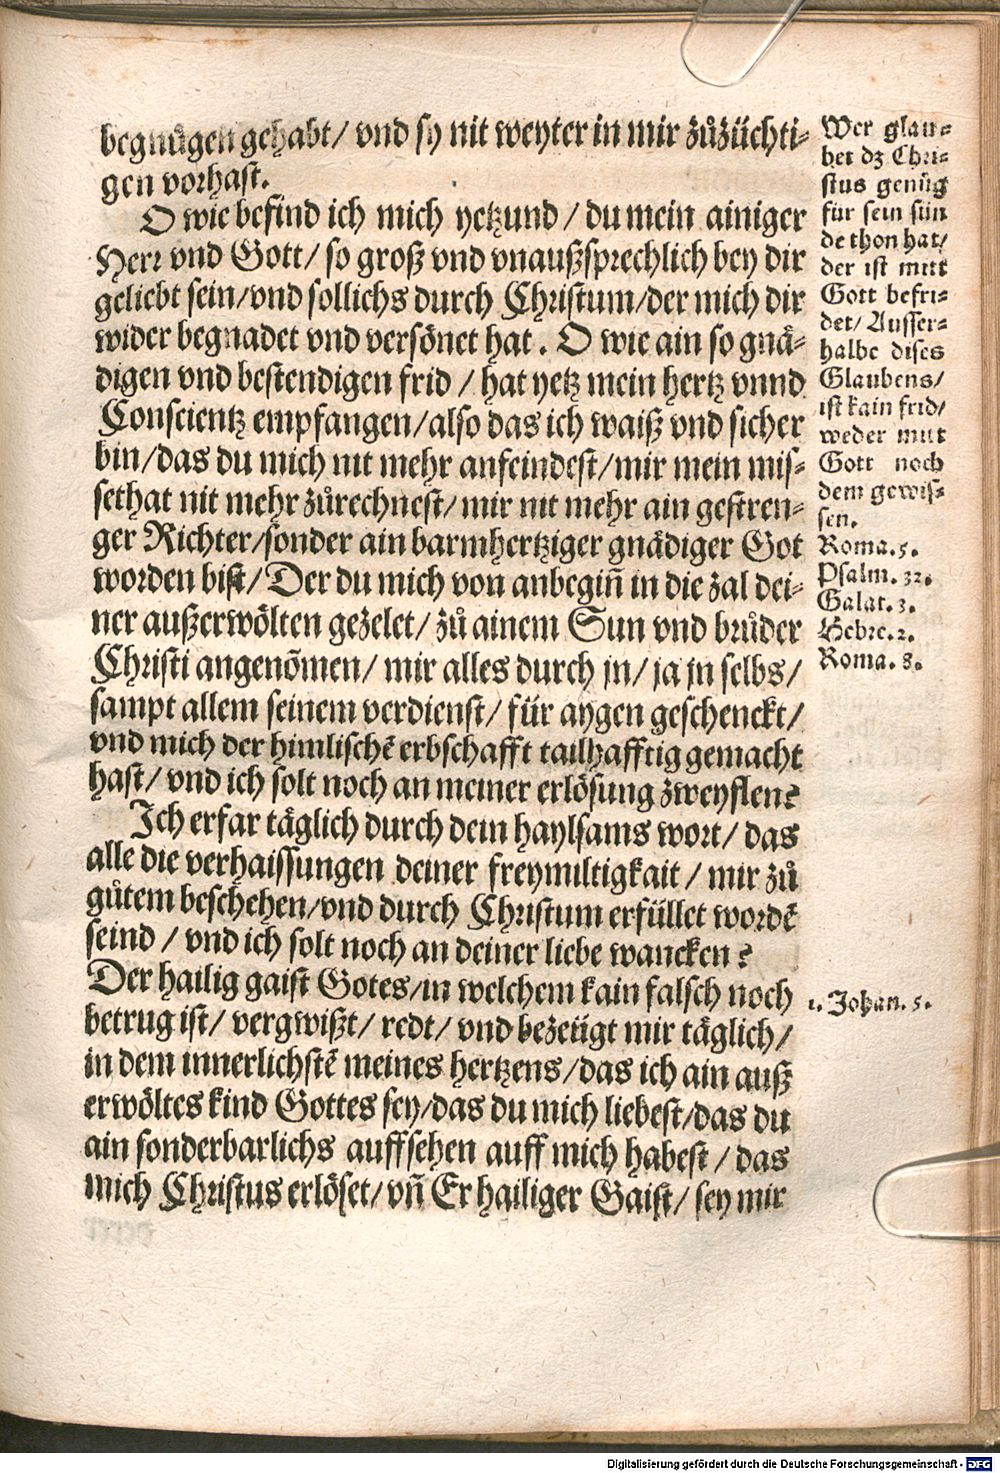 begnügen gehabt/ vnd sy nit weyter in mir zůzüchti⸗
gen vorhast.
O wie befind ich mich yetzund / du mein ainiger
Herr vnd Gott/ so groß vnd vnaußsprechlich bey dir
geliebt sein/vnd sollichs durch Christum/der mich dir
wider begnadet vnd versönet hat. O wie ain so gnä⸗
digen vnd bestendigen frid / hat yetz mein hertz vnnd
Conscientz empfangen/also das ich waiß vnd sicher
bin/das du mich nit mehr anfeindest/mir mein mis⸗
sethat nit mehr zůrechnest/ mir nit mehr ain gestren⸗
ger Richter/sonder ain barmhertziger gnädiger Got
worden bist/ Der du mich von anbegiñ in die zal dei⸗
ner außerwölten gezelet/ zů ainem Sun vnd brůder
Christi angenõmen/ mir alles durch jn/ ja jn selbs/
sampt allem seinem verdienst/ für aygen geschenckt/
vnd mich der himlischẽ erbschafft tailhafftig gemacht
hast/ vnd ich solt noch an meiner erlösung zweyflen?
Ich erfar täglich durch dein haylsams wort/ das
alle die verhaissungen deiner freymiltigkait / mir zů
gůtem beschehen/vnd durch Christum erfüllet wordẽ
seind / vnd ich solt noch an deiner liebe wancken?
Der hailig gaist Gotes/in welchem kain falsch noch
betrug ist/ vergwißt/ redt/ vnd bezeügt mir täglich/
in dem innerlichstẽ meines hertzens/das ich ain auß
erwöltes kind Gottes sey/das du mich liebest/das du
ain sonderbarlichs auffsehen auff mich habest / das
mich Christus erlöset/ vñ Er hailiger Gaist/ sey mir
Wer glau⸗
bet dz Chri⸗
stus genůg
für sein sün
de thon hat/
der ist mitt
Gott befri⸗
det/ Ausser⸗
halbe dises
Glaubens/
ist kain frid/
weder mitt
Gott noch
dem gewis⸗
sen.
Roma. 5.
Psalm. 32.
Galat. 3.
Hebre. 2.
Roma. 8.
1. Johan. 5.
Digitalisierung gefördert durch die Deutsche Forschungsgemeinschaft - DFG